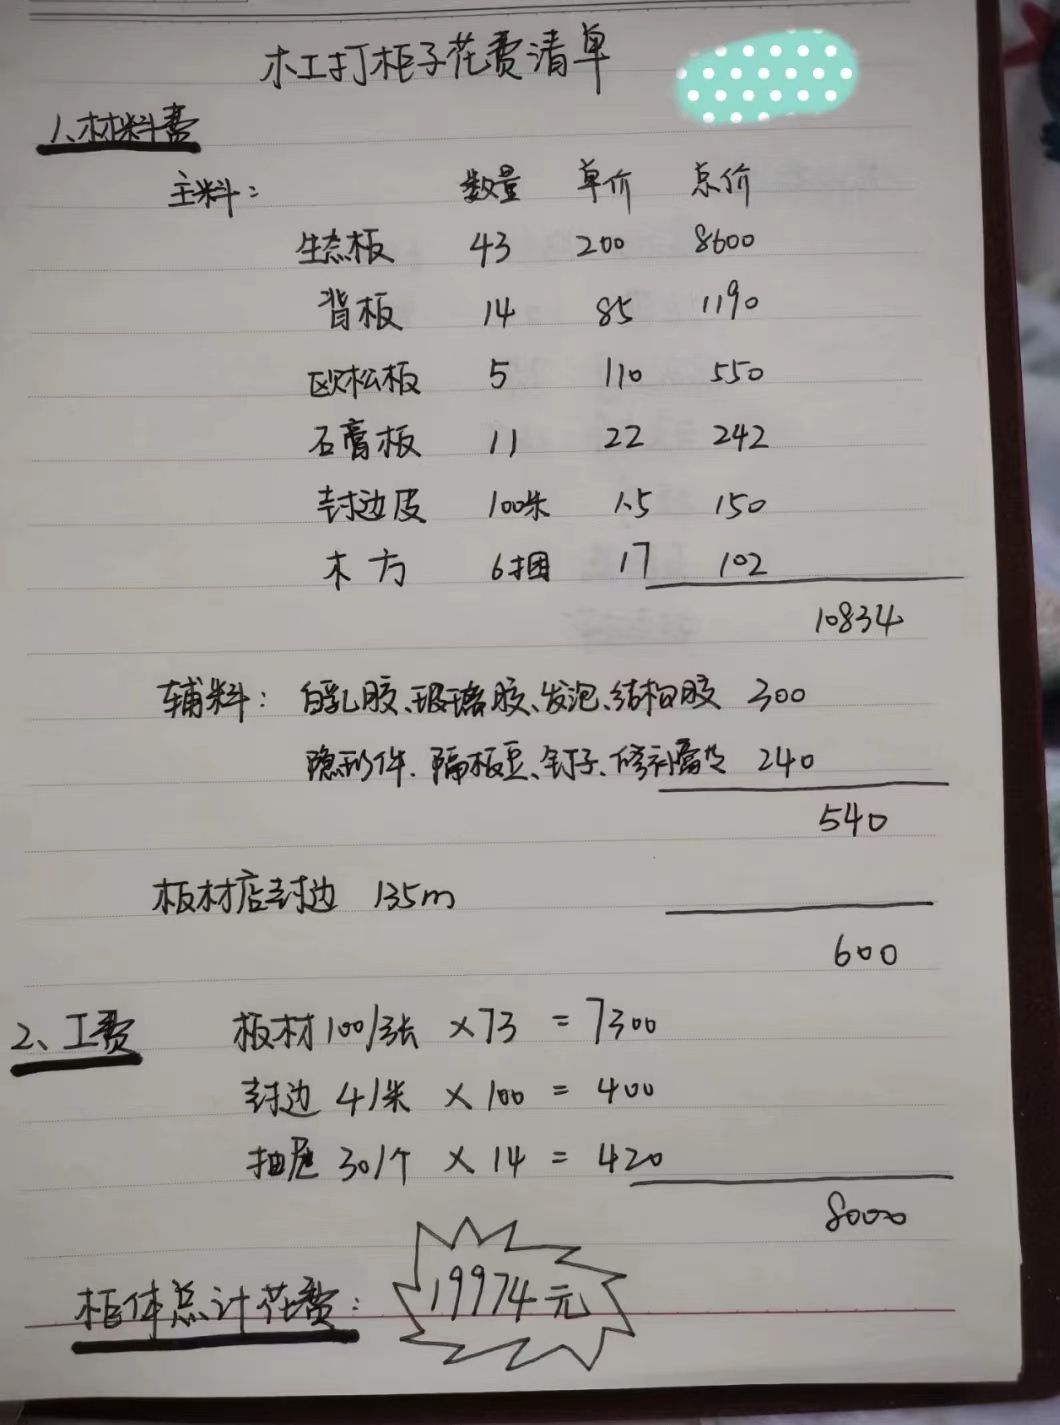 木工打柜子花费清单
1、材料费
主料: 数量 单价 总价
生态板 43 200 8600
背板 14 85 1190
欧松板 5 110 550
石膏板 11 22 242
封边皮 100米 1.5 150
木方 6捆 17 102
10834
辅料: 白乳胶、玻璃胶、发泡、结构胶 300
隐形件、隔板豆、钉子、修补膏 240
540
板材店封边 135m
600
2、工费 板材100/张 ×73 = 7300
封边 4/米 ×100 = 400
抽屉 30/个 ×14 = 420
8000
柜体总计花费: 19974元